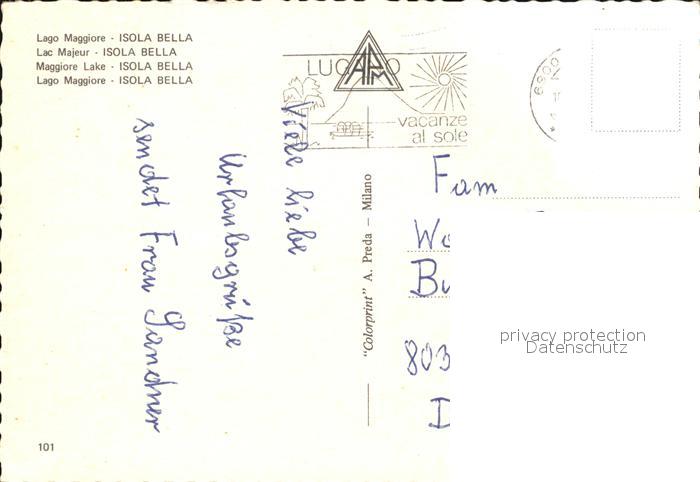 Lago Maggiore - ISOLA BELLA
Lac Majeur - ISOLA BELLA
Maggiore Lake - ISOLA BELLA
Lago Maggiore - ISOLA BELLA
LUGANO
APM
vacanze
al sole
6900
Viele liebe
Urlaubsgrüße
sendet Frau Sandner
"Colorprint" A. Preda — Milano
Fam
803
D
privacy protection
Datenschutz
101